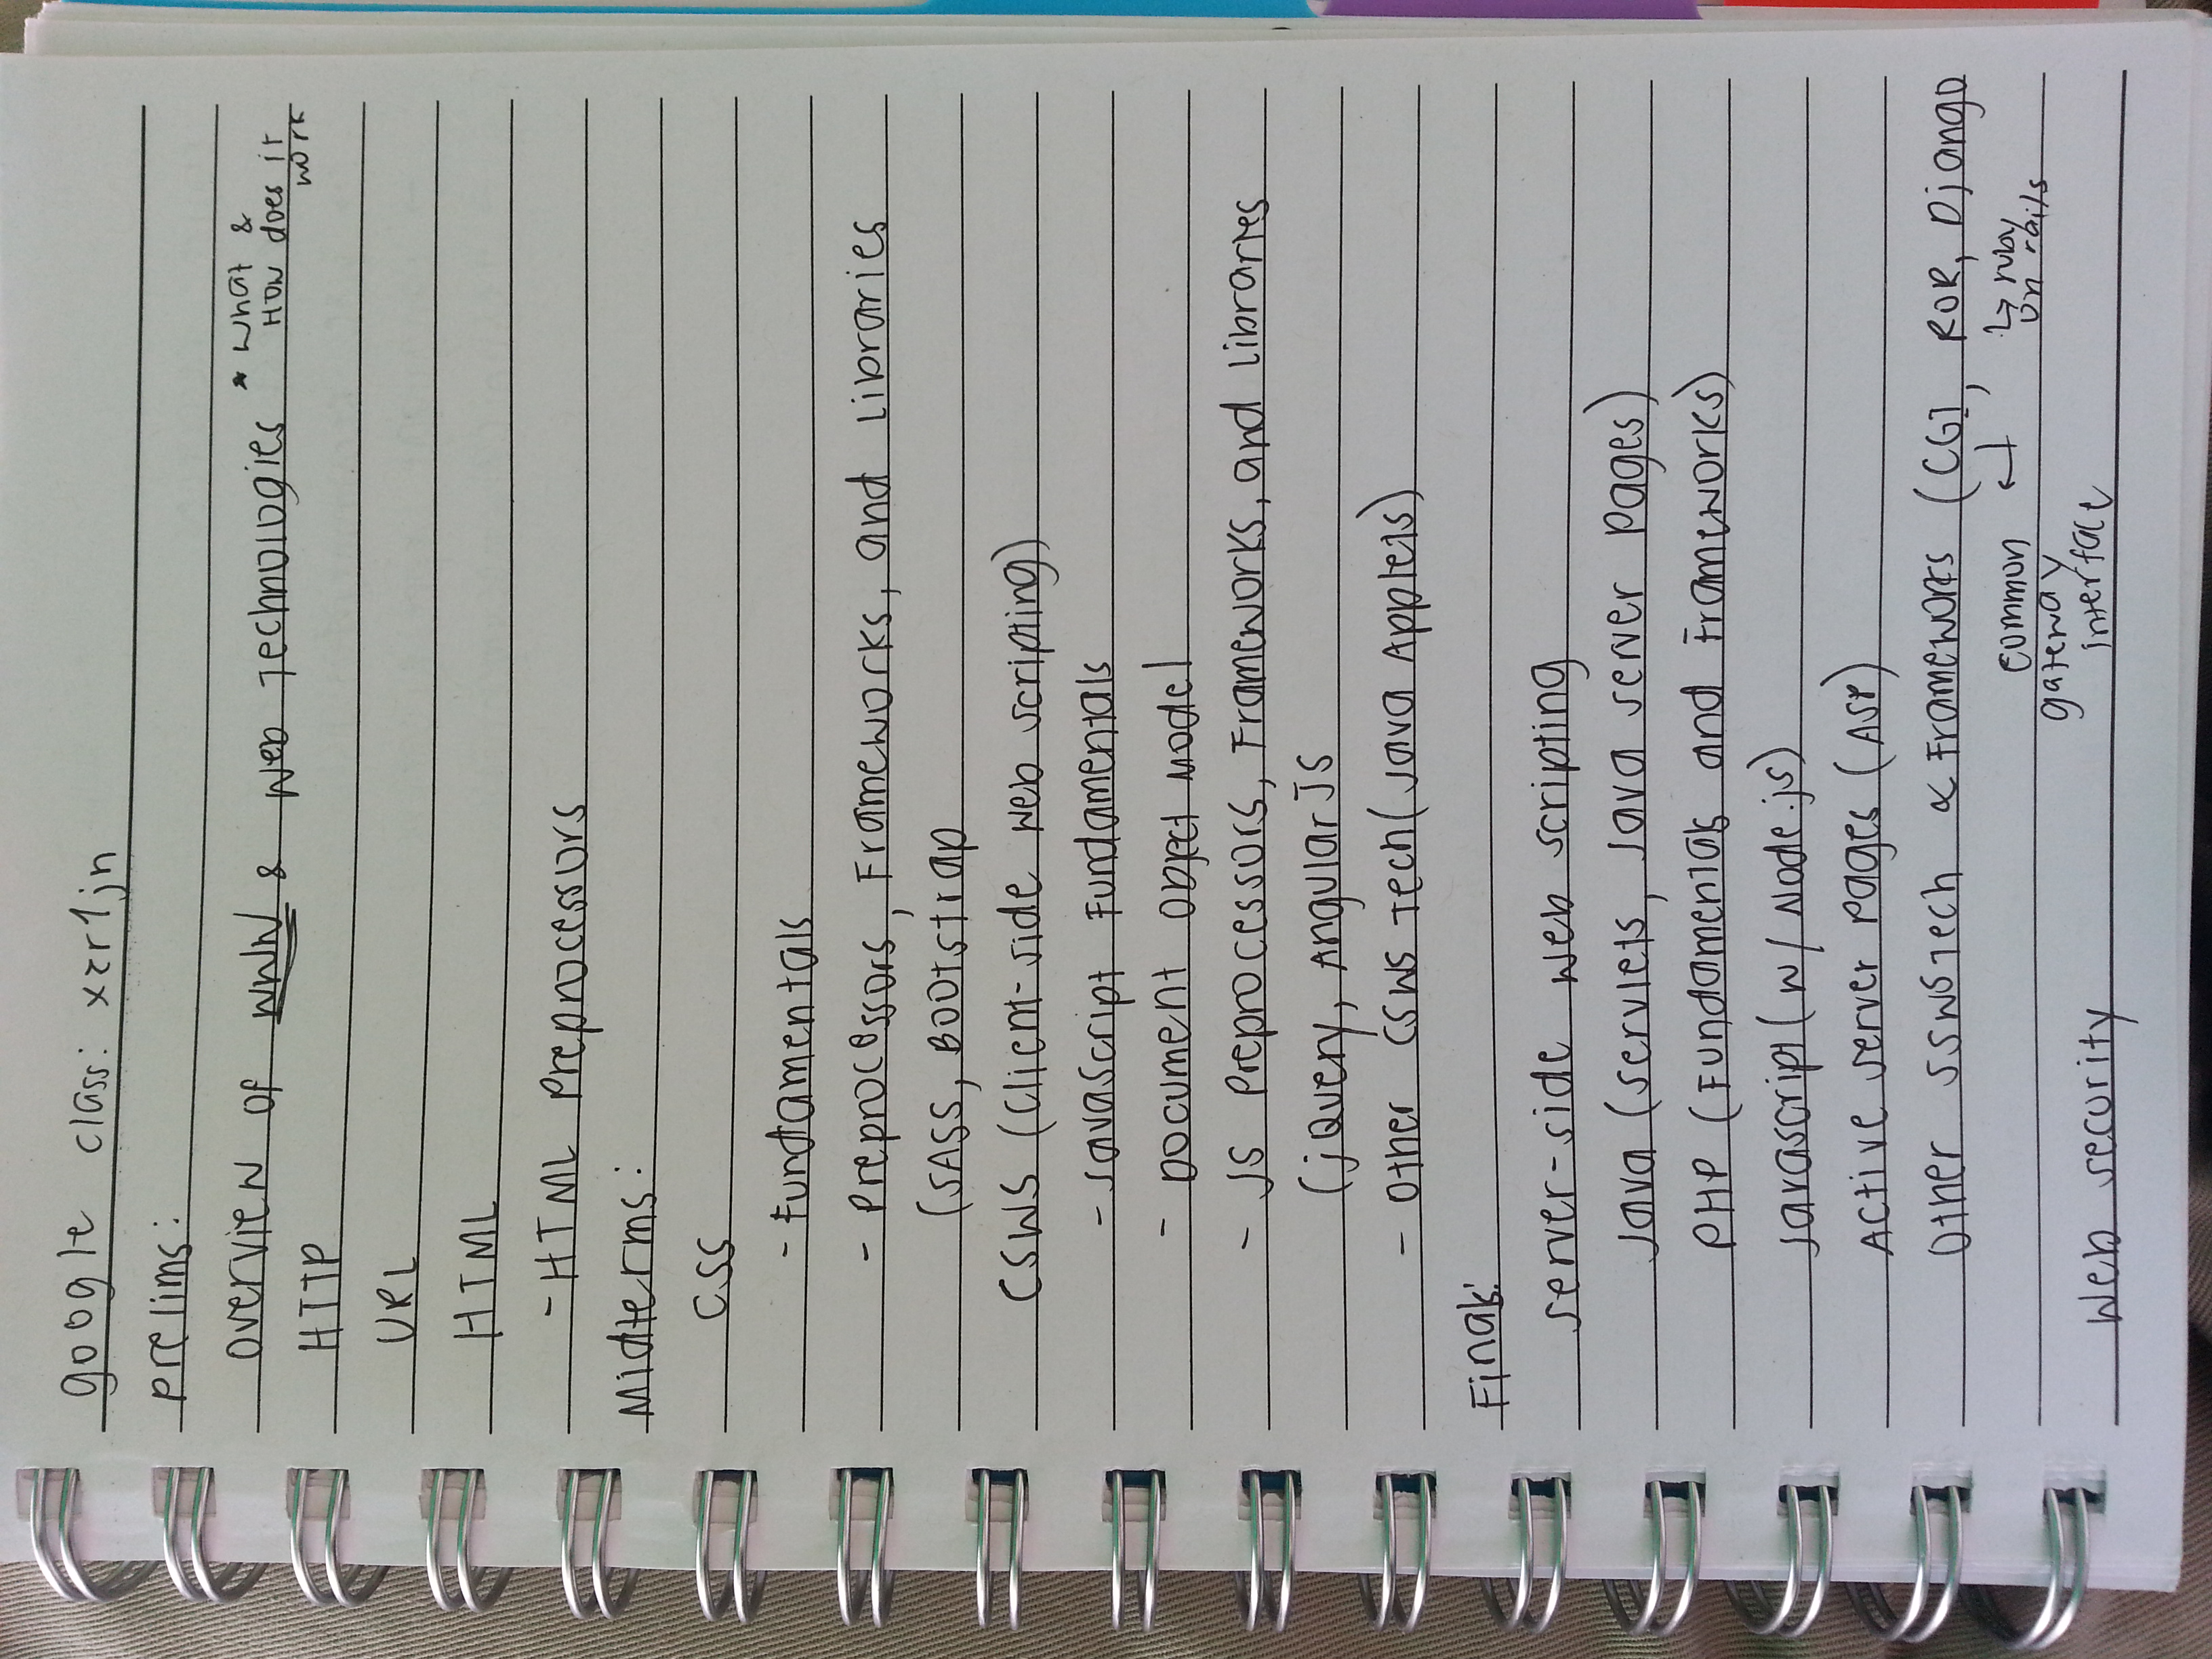 google class: xzr1jn
prelims:
overview of WWW & Web Technologies * what &
HOW does it
work
HTTP
URL
HTML
- HTML Preprocessors
Midterms:
CSS
- Fundamentals
- Preprocessors, Frameworks, and Libraries
(SASS, Bootstrap
CSWS (Client-side web scripting)
- Javascript Fundamentals
- Document Object Model
- JS Preprocessors, Frameworks, and Libraries
(jQuery, AngularJS
- Other CSWS Tech (Java Applets)
Finals:
server-side web scripting
Java (servlets, Java server pages)
PHP (Fundamentals and Frameworks)
Javascript (w/ Node.js)
Active server Pages (ASP)
Other SSWS Tech & Frameworks (CGI, ROR, Django
common ↵ ↳ ruby
on rails
gateway
interface
Web security